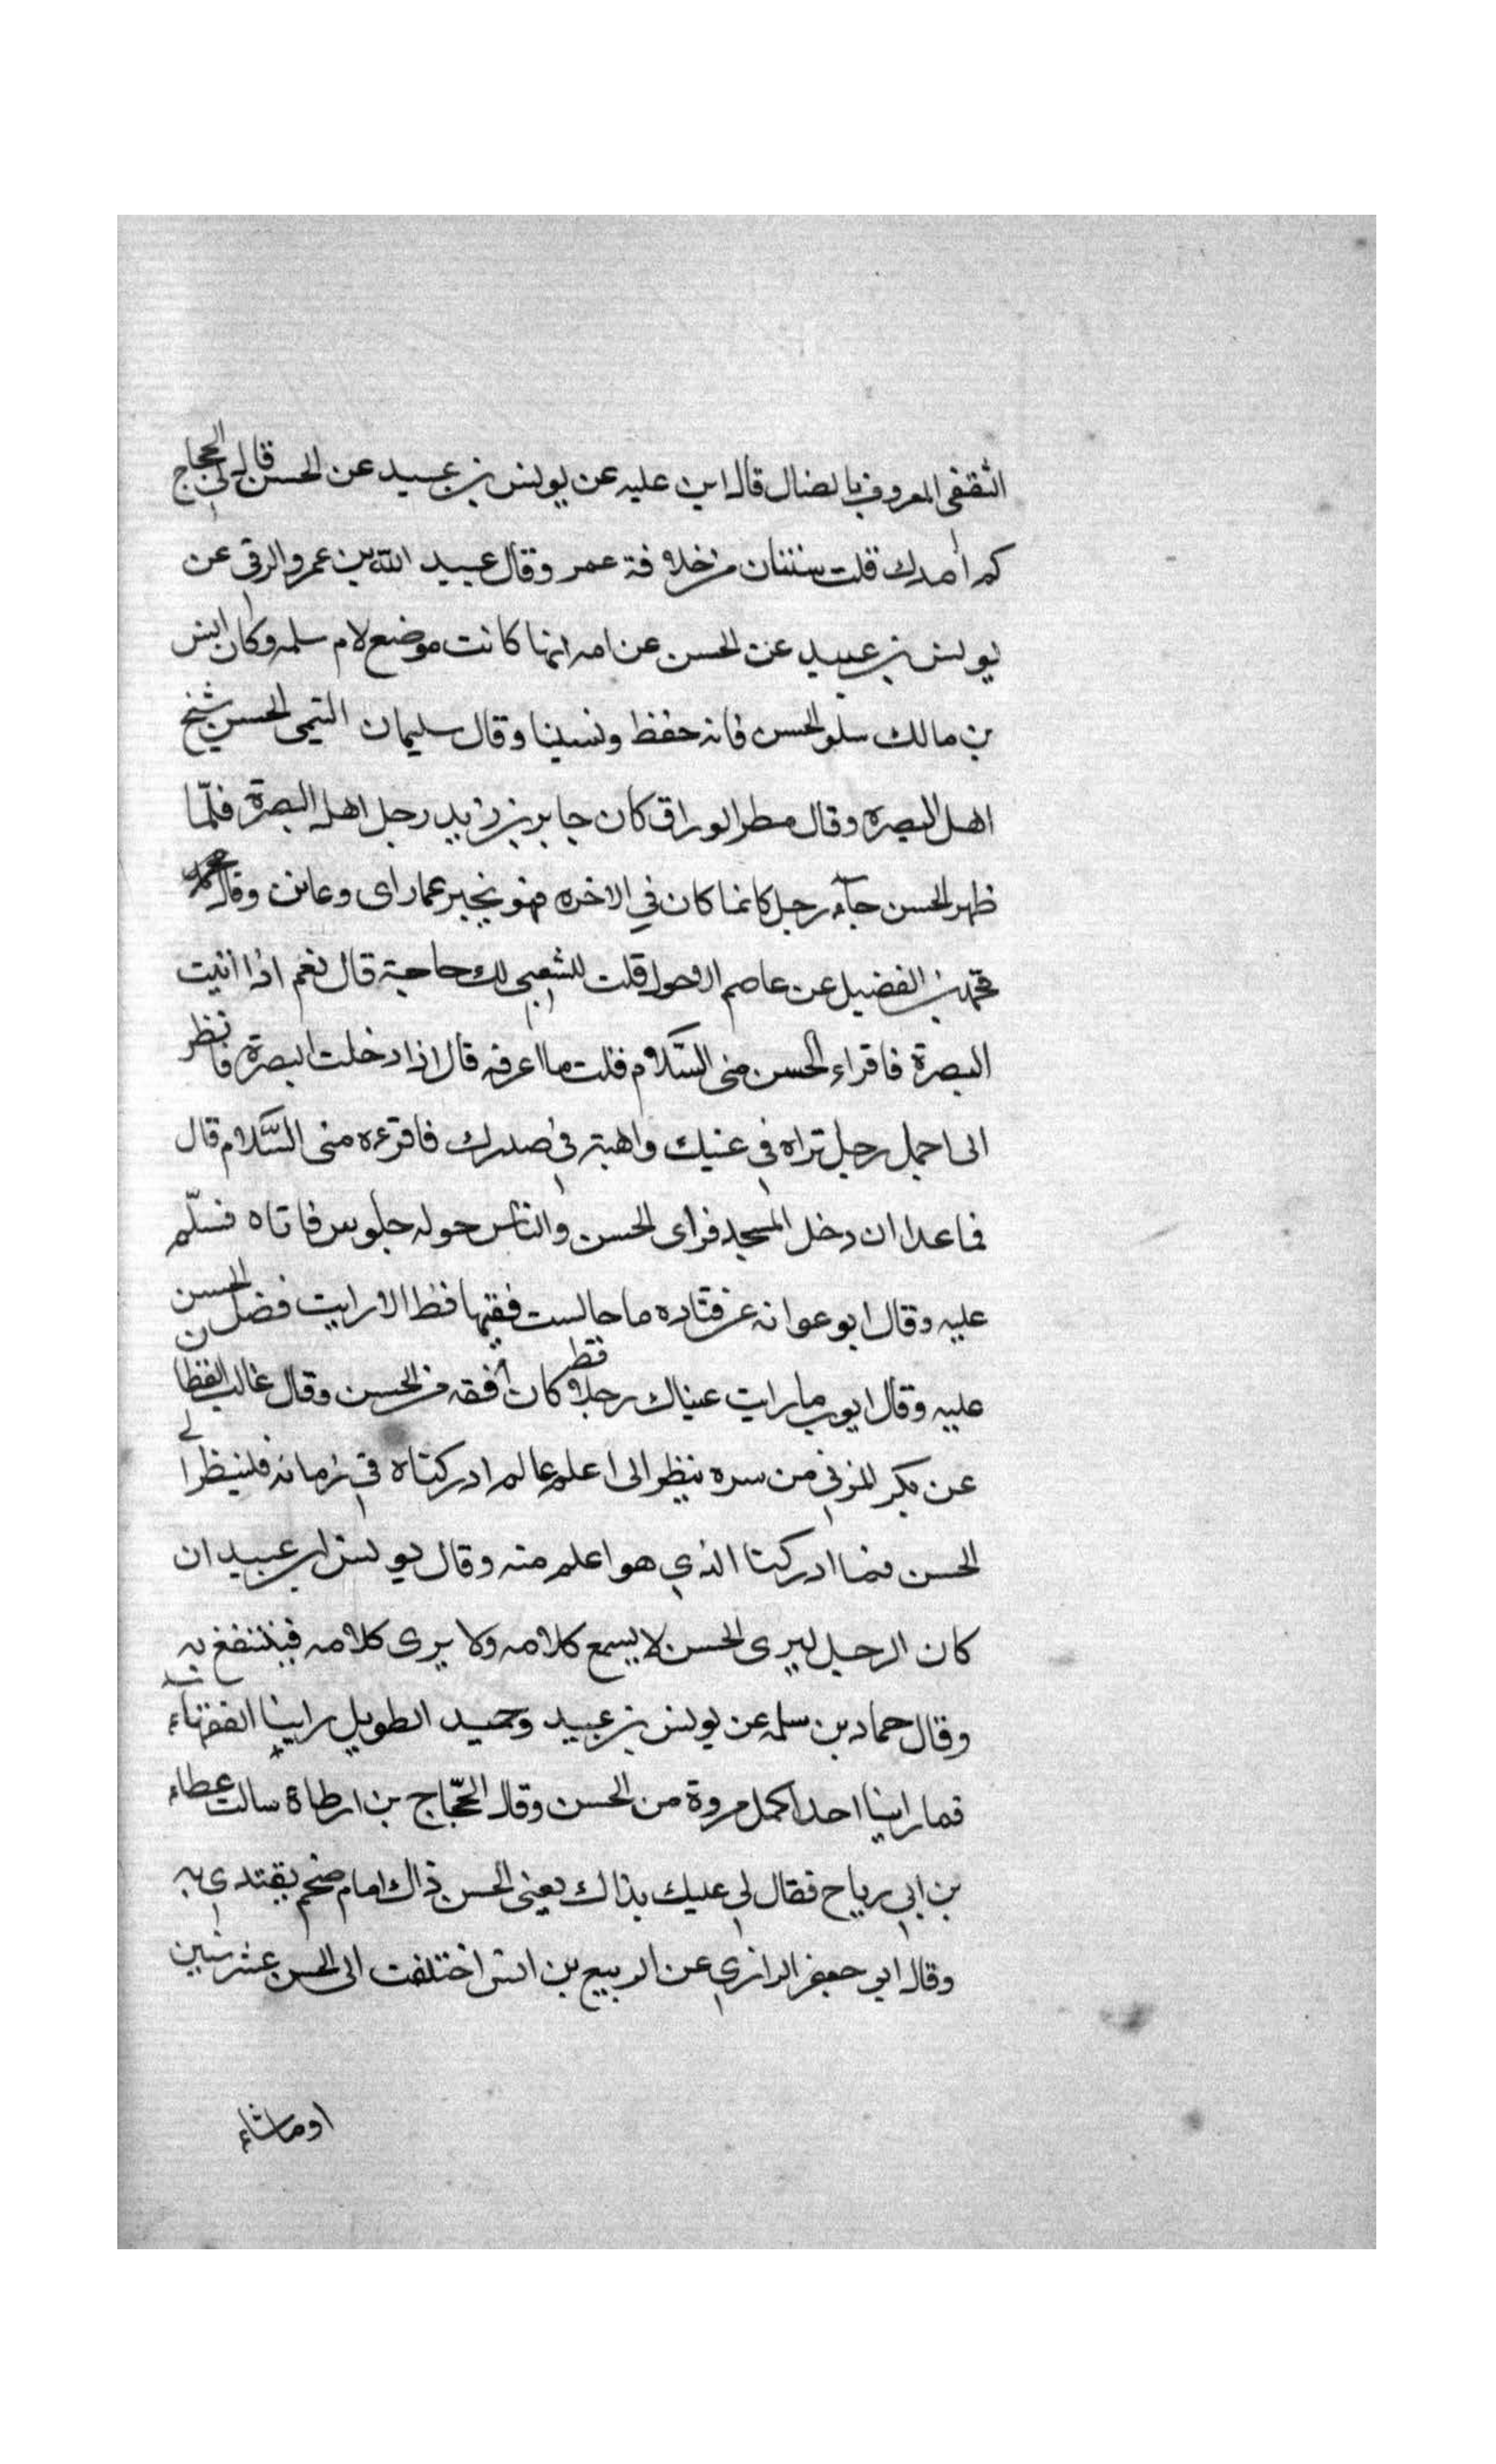 الثقفى المعروف بالضال قال ابن عليه عن يونس بن عبيد عن الحسن قال لى الحجاج
كم أمدك قلت سنتان من خلافة عمر وقال عبيد الله بن عمرو الرقى عن
يونس بن عبيد عن الحسن عن امه انها كانت موضع لام سلمه وكان انس
بن مالك سلو الحسن فانه حفظ ونسينا وقال سليمان التيمى الحسن شيخ
اهل البصره وقال مطر الوراق كان جابر بن زيد رجل اهل البصرة فلمّا
ظهر الحسن جآء رجل كانما كان في الاخره فهو يخبر عما راى وعاين وقال
محمد بن الفضيل عن عاصم الاحول قلت للشعبي لك حاجة قال نعم اذا اتيت
البصرة فاقراء الحسن منى السّلام فقلت ما اعرفه قال اذا دخلت البصرة فانظر
الى اجمل رجل تراه في عنيك واهبته في صدرك فاقرءه منى السَّلام قال
فما عدا ان دخل المسجد فراى الحسن والناس حوله جلوس فاتاه فسلّم
عليه وقال ابو عوانه عن قتاده ما جالست فقيها قط الا رايت فضل الحسن
عليه وقال ايوب ما رايت عيناك رجلا قط كان أفقه من الحسن وقال غالب القطان
عن بكر المزني من سره ينظر الى اعلم عالم ادركناه في زمانه فلينظر الى
الحسن فما ادركنا الذي هو اعلم منه وقال يونس ابن عبيد ان
كان الرجل ليرى الحسن لا يسمع كلامه ولا يرى كلامه فينتفع به
وقال حماد بن سلمه عن يونس بن عبيد وحميد الطويل راينا الفقهاء
فما راينا احدا اكمل مروة من الحسن وقال الحجّاج بن ارطاة سالت عطاء
بن ابي رباح فقال لي عليك بذاك يعنى الحسن ذاك امام ضخم يقتدي به
وقال ابو جعفر الرازي عن الربيع بن انس اختلفت الى الحسن عشر سنين
او ماشاء